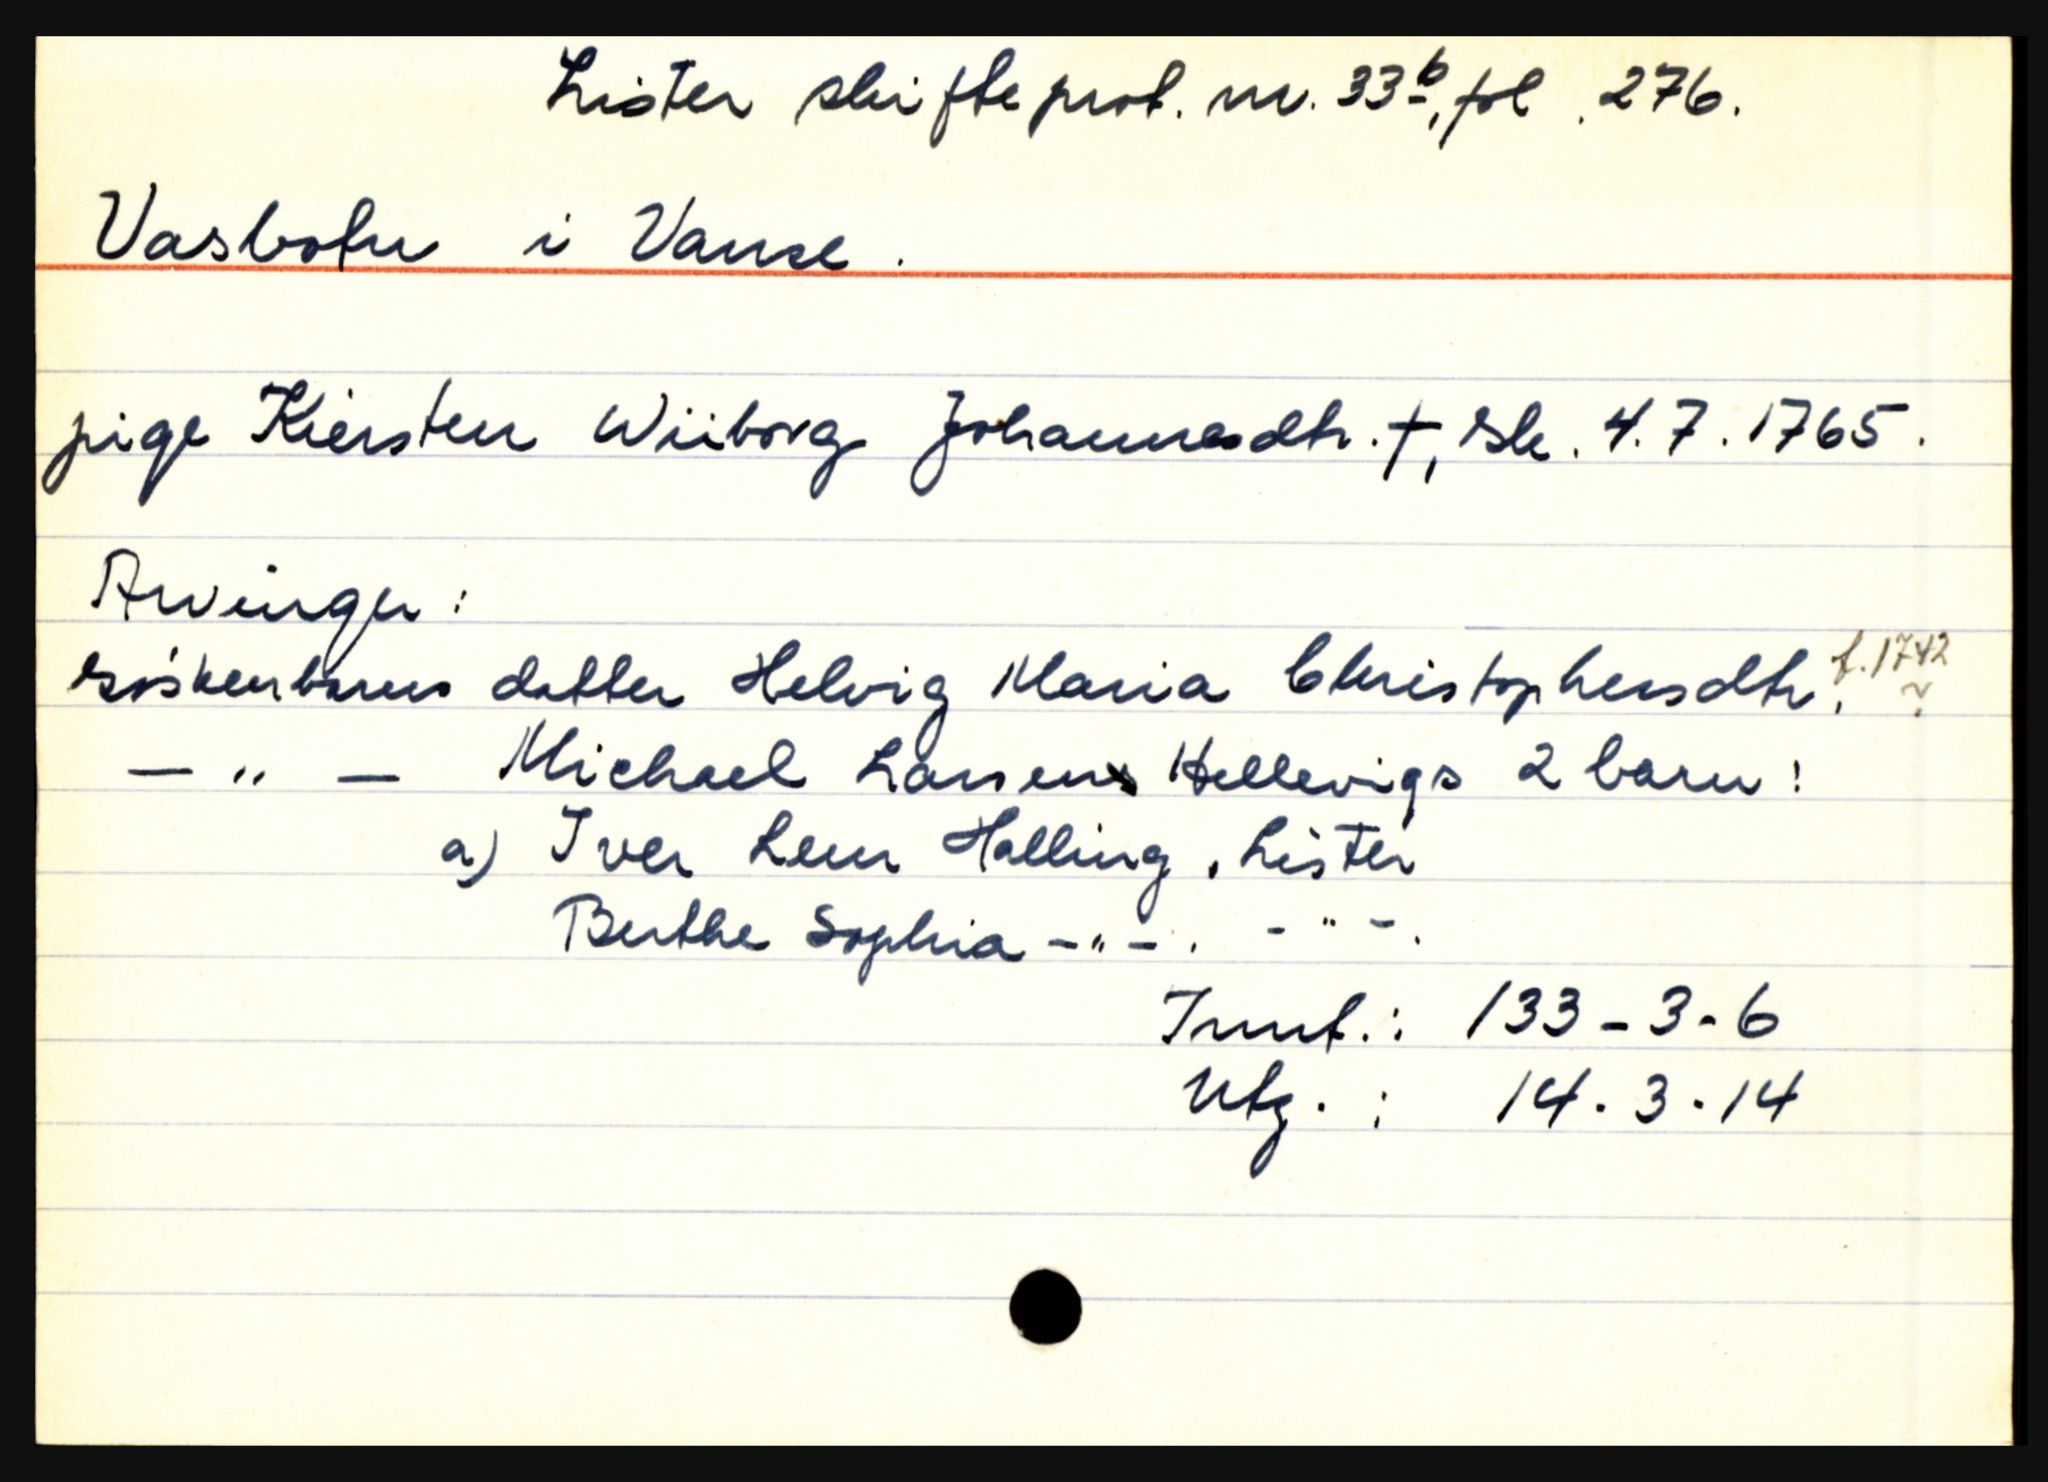 Lister skifteprot. nr. 33b, fol. 276.
Vasbotn i Vanse.
pige Kiersten Wiiborg Johannesdtr. †, sk. 4.7.1765.
Arvinger:
søskenbarns datter Helvig Maria Christophersdtr. f. 1742
— " — Michael Larsens Hellevigs 2 barn:
a) Iver Lem Halling, Lister
Berthe Sophia - " - . - " - .
Innt.: 133-3-6
Utg.: 14.3.14